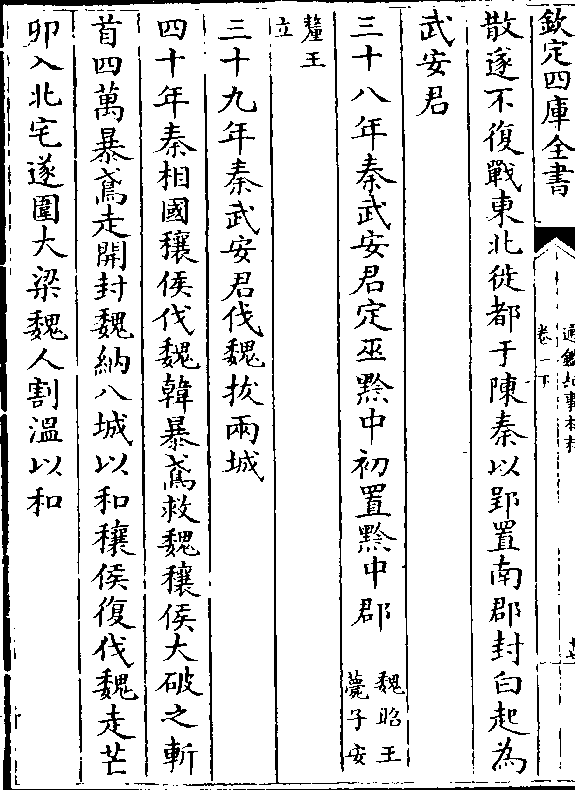 欽定四庫全書
通鑑紀事本末
卷一下
散遂不復戰東北徙都于陳秦以郢置南郡封白起為
武安君
三十八年秦武安君定巫黔中初置黔中郡 魏昭王薨子安
釐王立
三十九年秦武安君伐魏拔兩城
四十年秦相國穰侯伐魏韓暴鳶救魏穰侯大破之斬
首四萬暴鳶走開封魏納八城以和穰侯復伐魏走芒
卯入北宅遂圍大梁魏人割溫以和